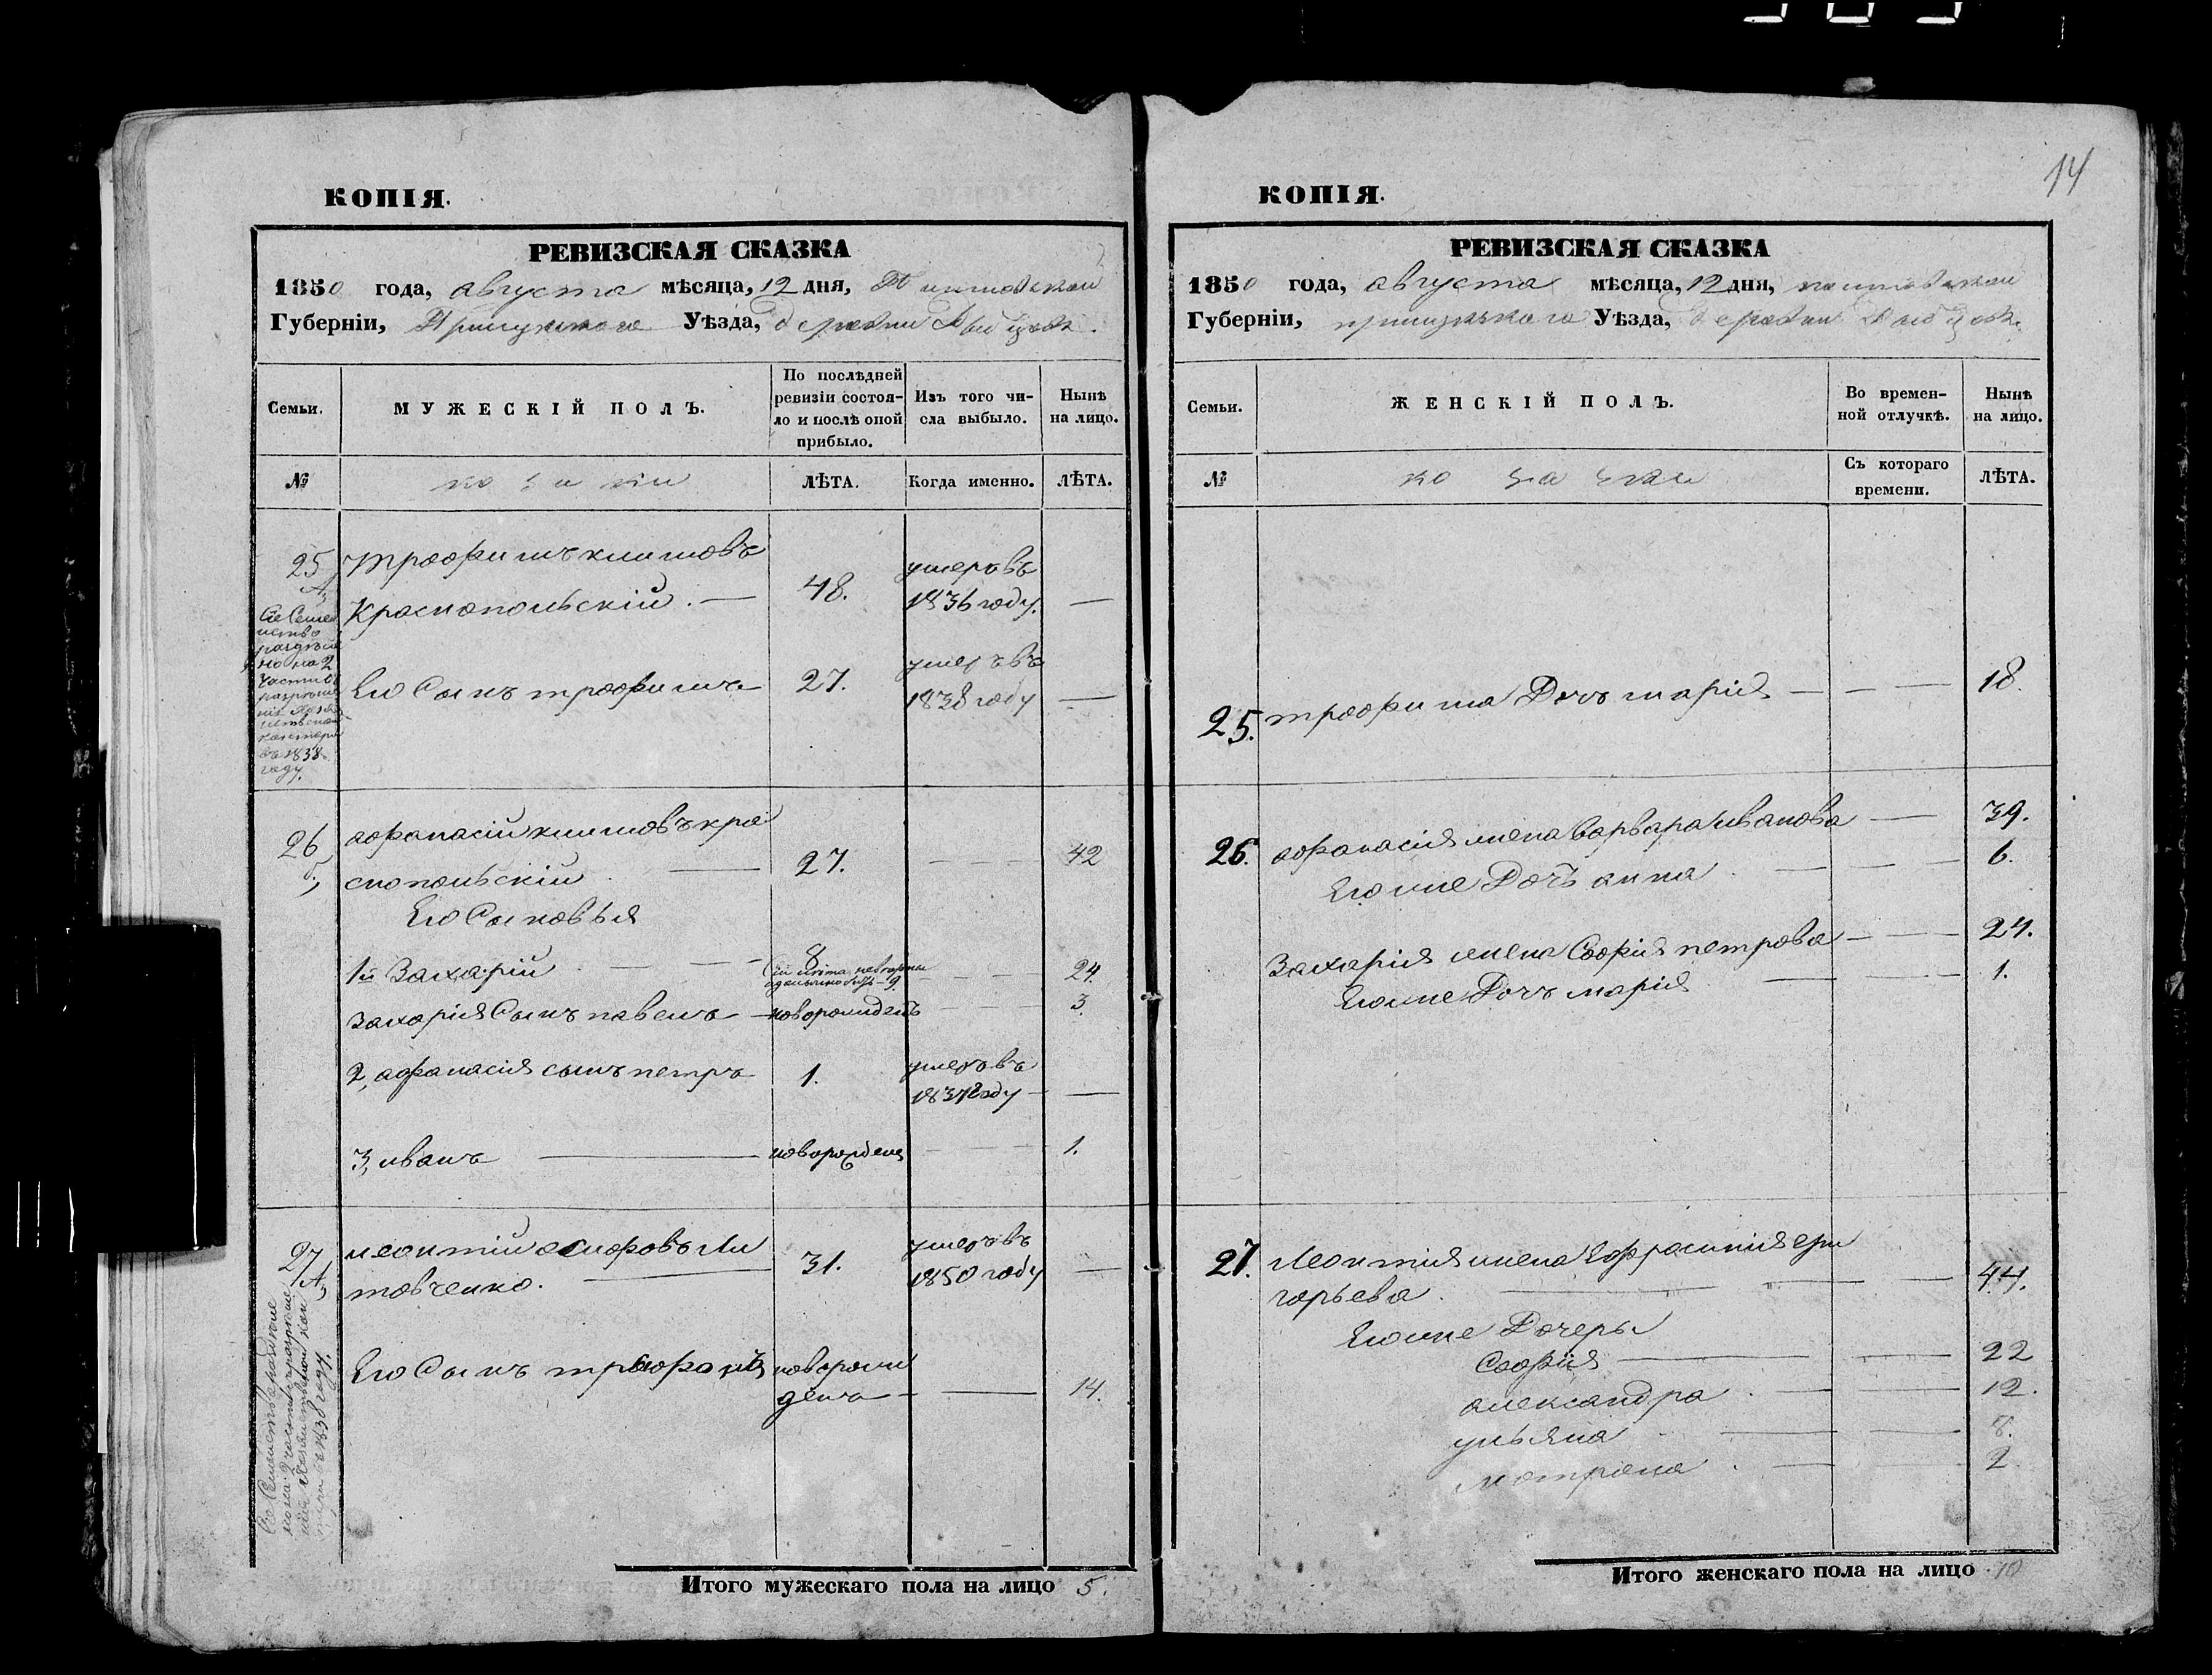 14
КОПІЯ.
РЕВИЗСКАЯ СКАЗКА
1850 года, августа мѣсяца, 12 дня, Полтавской
Губерніи, Прилуцкаго Уѣзда, деревни
Семьи.
МУЖЕСКІЙ ПОЛЪ.
По послѣдней ревизіи состоя-
ло и послѣ оной прибыло.
Изъ того чи-
сла выбыло.
Нынѣ
на лицо.
№
козаки
ЛѢТА.
Когда именно.
ЛѢТА.
25 Трофимъ климовъ умеръ въ
Краснопольскій. — 48. 1836 году. —
Сіе Семей
ство
раздѣле
но на 2
части
въ 1838
году.
Его Сынъ трофимъ 27. умеръ въ
1838 году —
26 афанасій климовъ кра
снопольскій — 27. — 42
Его Сыновья
1й Захарій — 8 — 24.
Захарія Сынъ павелъ — новорожденъ — 3.
2, афанасія сынъ петръ 1. умеръ въ
1837 году —
3, иванъ — новорожден — 1.
27 леонтій Ли
товченко. — 31. умеръ въ
1850 году —
Его Сынъ новорож
денъ — 14.
Итого мужескаго пола на лицо 5.
КОПІЯ.
РЕВИЗСКАЯ СКАЗКА
1850 года, августа мѣсяца, 12 дня, полтавской
Губерніи, прилуцкаго Уѣзда, деревни
Семьи.
ЖЕНСКІЙ ПОЛЪ.
Во времен-
ной отлучкѣ.
Нынѣ
на лицо.
№
козачки
Съ котораго
времени.
ЛѢТА.
25. трофима Дочь марія — — — 18.
26. афанасія жена Варвара иванова — 39.
Егоже Дочь анна — — 6.
Захарія жена Софія петрова — — 24.
Егоже Дочь марія — — 1.
27. Леонтія жена Ефросинія гри
горьева. — — 44.
Егоже Дочеры
Софія — — 22
александра. — — 12.
ульяна — — 8.
мотрона. — — 2.
Итого женскаго пола на лицо 10